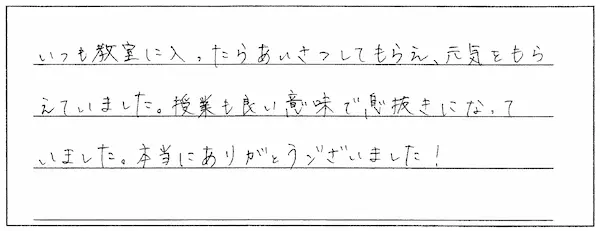 いつも教室に入ったらあいさつしてもらえ、元気をもら
えていました。授業も良い意味で息抜きになって
いました。本当にありがとうございました！